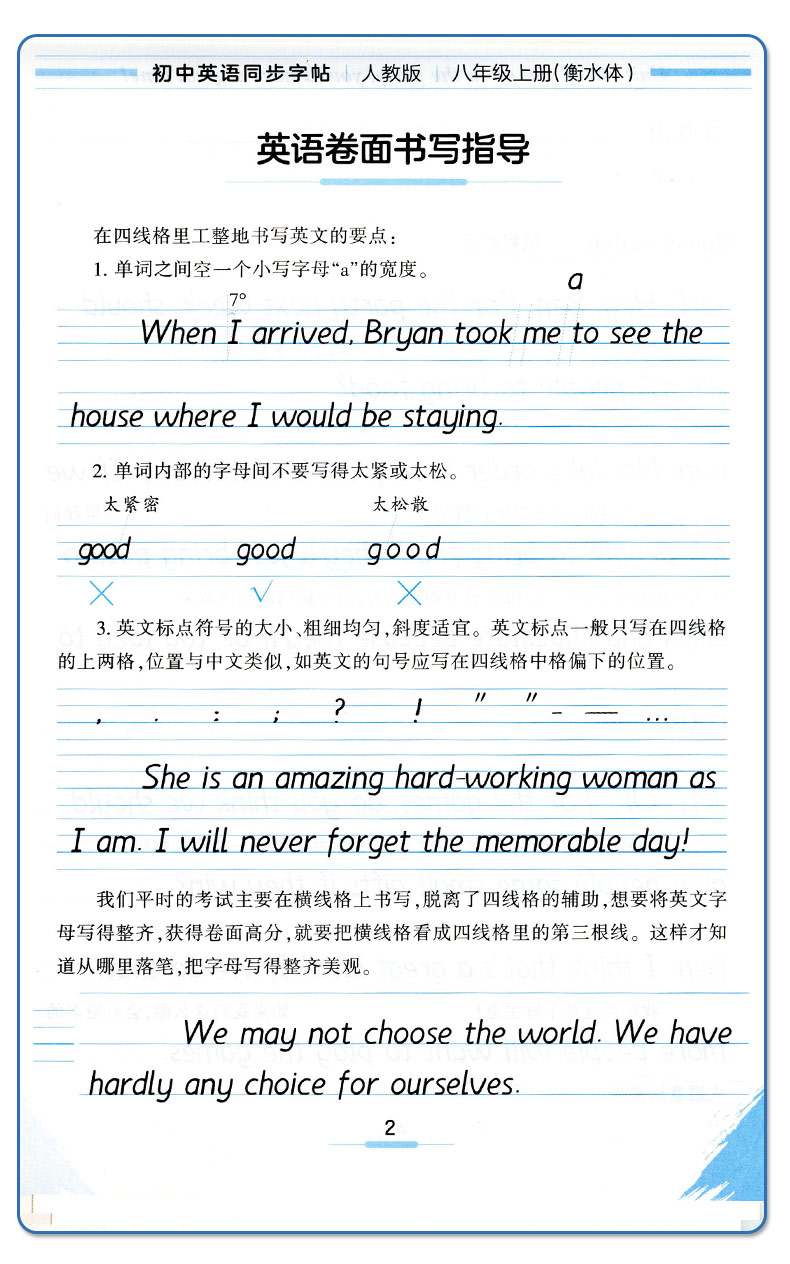 初中英语同步字帖 | 人教版 | 八年级上册(衡水体)
英语卷面书写指导
在四线格里工整地书写英文的要点：
1. 单词之间空一个小写字母“a”的宽度。
a
7°
When I arrived, Bryan took me to see the
house where I would be staying.
2. 单词内部的字母间不要写得太紧或太松。
太紧密 太松散
good good good
× √ ×
3. 英文标点符号的大小、粗细均匀，斜度适宜。英文标点一般只写在四线格
的上两格，位置与中文类似，如英文的句号应写在四线格中格偏下的位置。
, . : ; ? ! " " - — ...
She is an amazing hard-working woman as
I am. I will never forget the memorable day!
我们平时的考试主要在横线格上书写，脱离了四线格的辅助，想要将英文字
母写得整齐，获得卷面高分，就要把横线格看成四线格里的第三根线。这样才知
道从哪里落笔，把字母写得整齐美观。
We may not choose the world. We have
hardly any choice for ourselves.
2